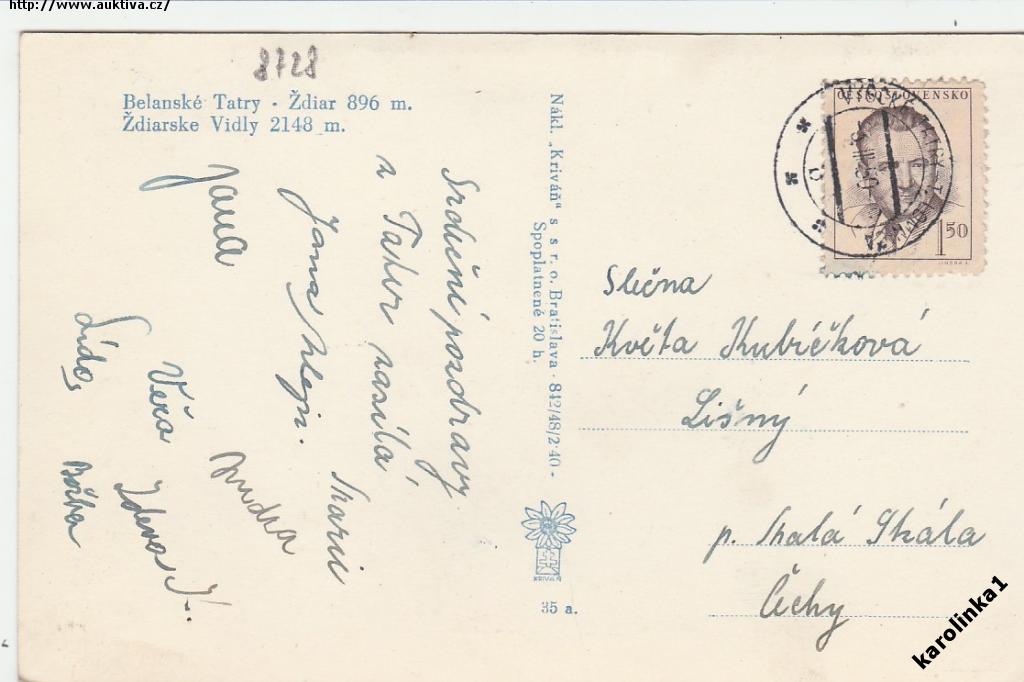 http://www.auktiva.cz/
8728
Belanské Tatry - Ždiar 896 m.
Ždiarske Vidly 2148 m.
Srdečné pozdravy
z Tater zasílá
Jana
Marie
Jana
Věra
Zdena J.
Lída
Nákl. „Kriváň" s s r. o. Bratislava - 842/48/2·40 -
Spoplatnené 20 h.
KRIVÁŇ
35 a.
ČESKOSLOVENSKO
1 50
Slečna
Květa Kubíčková
Líšný
p. Malá Skála
Čechy
karolinka1